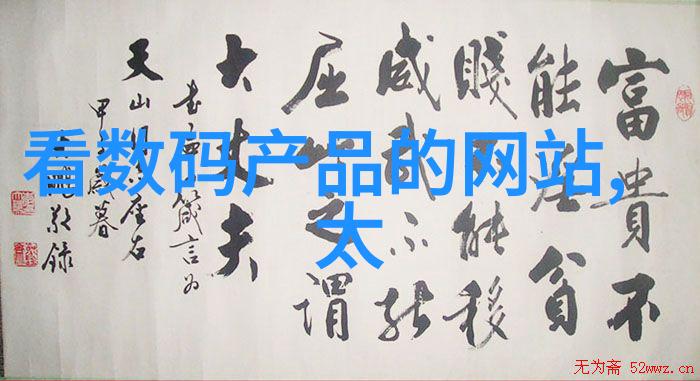 富貴不
能淫貧
賤不能移
威武不能
屈此之謂
大丈夫
天山
甲
歲暮
敬録
看数码产品的网站,
太
无为斋 52wwz.cn